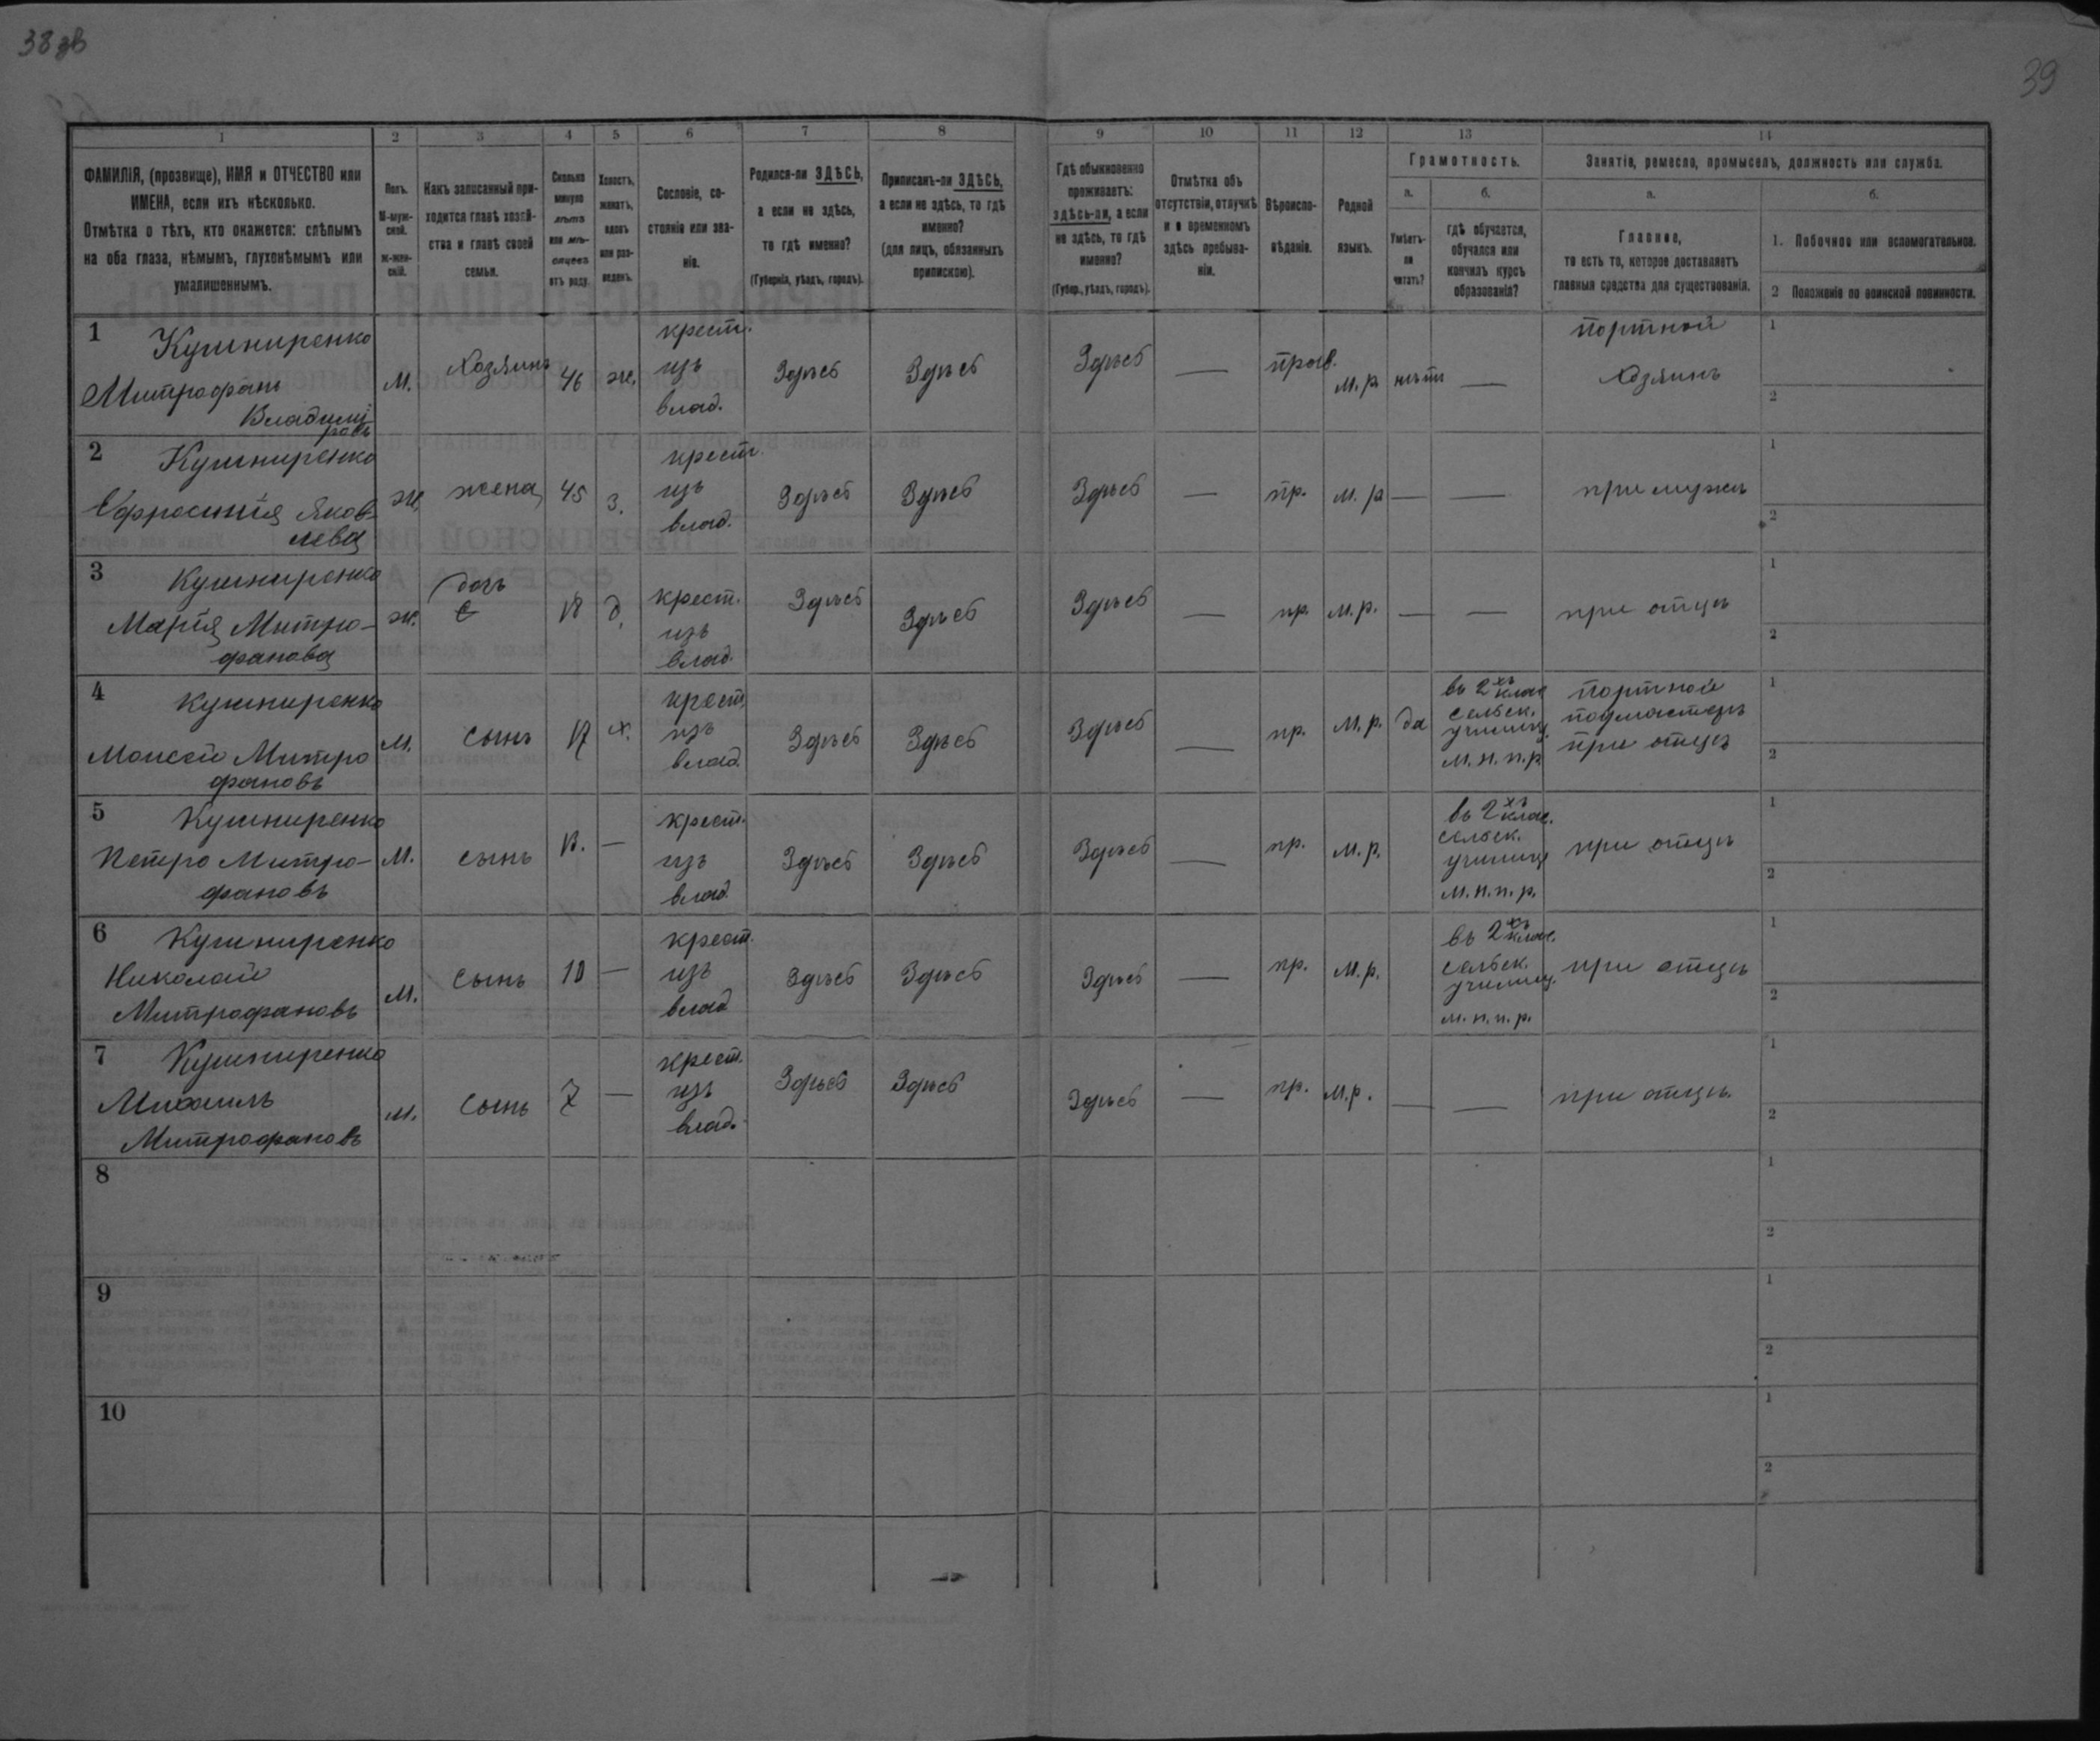 38 зв
39
1 2 3 4 5 6 7 8 9 10 11 12 13 14
ФАМИЛІЯ, (прозвище), ИМЯ и ОТЧЕСТВО или
ИМЕНА, если ихъ нѣсколько.
Отмѣтка о тѣхъ, кто окажется: слѣпымъ
на оба глаза, нѣмымъ, глухонѣмымъ или
умалишеннымъ.
Полъ.
М-муж-
ской.
ж-жен-
скій.
Какъ записанный при-
ходится главѣ хозяй-
ства и главѣ своей
семьи.
Сколько
минуло
лѣтъ
или мѣ-
сяцевъ
отъ роду.
Холостъ,
женатъ,
вдовъ
или раз-
веденъ.
Сословіе, со-
стояніе или зва-
ніе.
Родился-ли ЗДѢСЬ,
а если не здѣсь,
то гдѣ именно?
(Губернія, уѣздъ, городъ).
Приписанъ-ли ЗДѢСЬ,
а если не здѣсь, то гдѣ
именно?
(для лицъ, обязанныхъ
припискою).
Гдѣ обыкновенно
проживаетъ:
здѣсь-ли, а если
не здѣсь, то гдѣ
именно?
(Губер., уѣздъ, городъ).
Отмѣтка объ
отсутствіи, отлучкѣ
и о временномъ
здѣсь пребыва-
ніи.
Вѣроиспо-
вѣданіе.
Родной
языкъ.
Грамотность.
а.
Умѣетъ-
ли
читать?
б.
гдѣ обучается,
обучался или
кончилъ курсъ
образованія?
Занятіе, ремесло, промыселъ, должность или служба.
а.
Главное,
то есть то, которое доставляетъ
главныя средства для существованія.
б.
1. Побочное или вспомогательное.
2 Положеніе по воинской повинности.
1 Кушниренко
Митрофанъ
Владими
ровъ
М.
Хозяинъ
46
ж.
крест.
изъ
влад.
Здѣсь
Здѣсь
Здѣсь
—
прав.
м.р
нѣтъ
—
портной
Хозяинъ
1
2
2 Кушниренко
Ефросинія Яков-
лева
ж.
жена
45
з.
крест.
изъ
влад.
Здѣсь
Здѣсь
Здѣсь
—
пр.
м.р
—
—
при мужѣ
1
2
3 Кушниренко
Марія Митро-
фанова
ж.
дочь
18
д.
крест.
изъ
влад.
Здѣсь
Здѣсь
Здѣсь
—
пр.
м.р.
—
—
при отцѣ
1
2
4 Кушниренко
Моисей Митро
фановъ
м.
сынъ
17
х.
крест.
изъ
влад.
Здѣсь
Здѣсь
Здѣсь
—
пр.
м.р.
да
въ 2хъ клас
сельск.
училищ.
м.н.п.р
портной
подмастерь
при отцѣ
1
2
5 Кушниренко
Петро Митро-
фановъ
м.
сынъ
13.
—
крест.
изъ
влад
Здѣсь
Здѣсь
Здѣсь
—
пр.
м.р.
въ 2хъ клас.
сельск.
училищ
м.н.п.р.
при отцѣ
1
2
6 Кушниренко
Николай
Митрофановъ
м.
сынъ
10
—
крест.
изъ
влад
Здѣсь
Здѣсь
Здѣсь
—
пр.
м.р.
въ 2хъ клас.
сельск.
училищ.
м.н.п.р.
при отцѣ
1
2
7 Кушниренко
Михаилъ
Митрофановъ
м.
сынъ
7
—
крест.
изъ
влад.
Здѣсь
Здѣсь
Здѣсь
—
пр.
м.р.
—
—
при отцѣ.
1
2
8
1
2
9
1
2
10
1
2